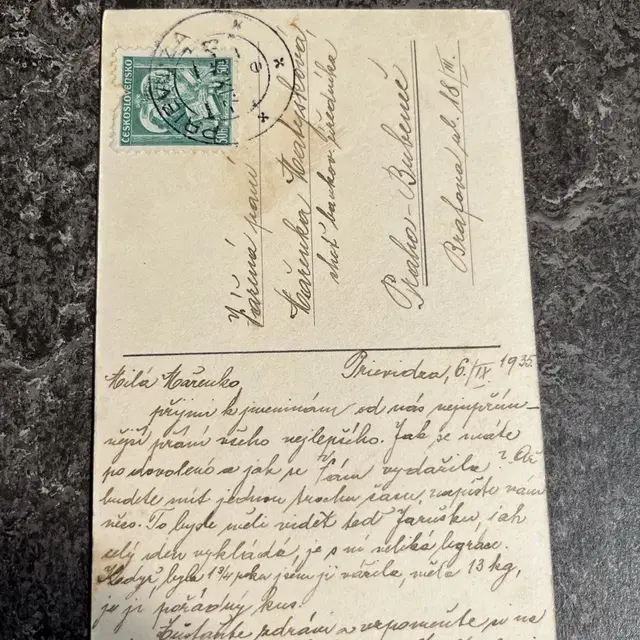 ČESKOSLOVENSKO
PRIEVIDZA
Vážená paní
Mařenka
choť bankov. úředníka
Praha-Bubeneč
Brafova ul. 18/III.
Prievidza, 6./IX. 1935.
Milá Mařenko,
přijmi k jmeninám od nás nejupřím-
nější přání všeho nejlepšího. Jak se máte
po dovolené a jak se Vám vydařila? Až
budete mít jednou trochu času, napište nám
něco. To byste měli vidět teď Jarušku, jak
celý den vykládá, je s ní veliká legrace.
Když byla 1¾ roku jsem ji vážila, měla 13 kg,
je jí pořádný kus.
zdrávi a vzpomeňte si na